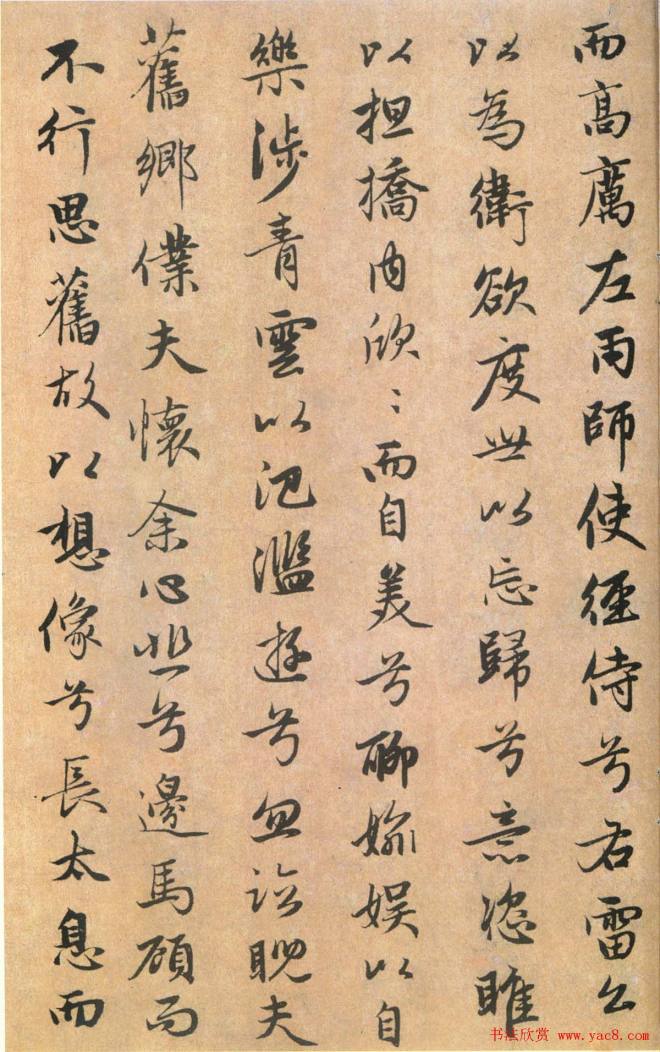 而高厲左雨師使徑侍兮右雷公
以為衛欲度世以忘歸兮意恣睢
以担撟內欣〻而自美兮聊媮娛以自
樂涉青雲以汜濫遊兮忽臨睨夫
舊鄉僕夫懷余心悲兮邊馬顧而
不行思舊故以想像兮長太息而
书法欣赏 www.yac8.com